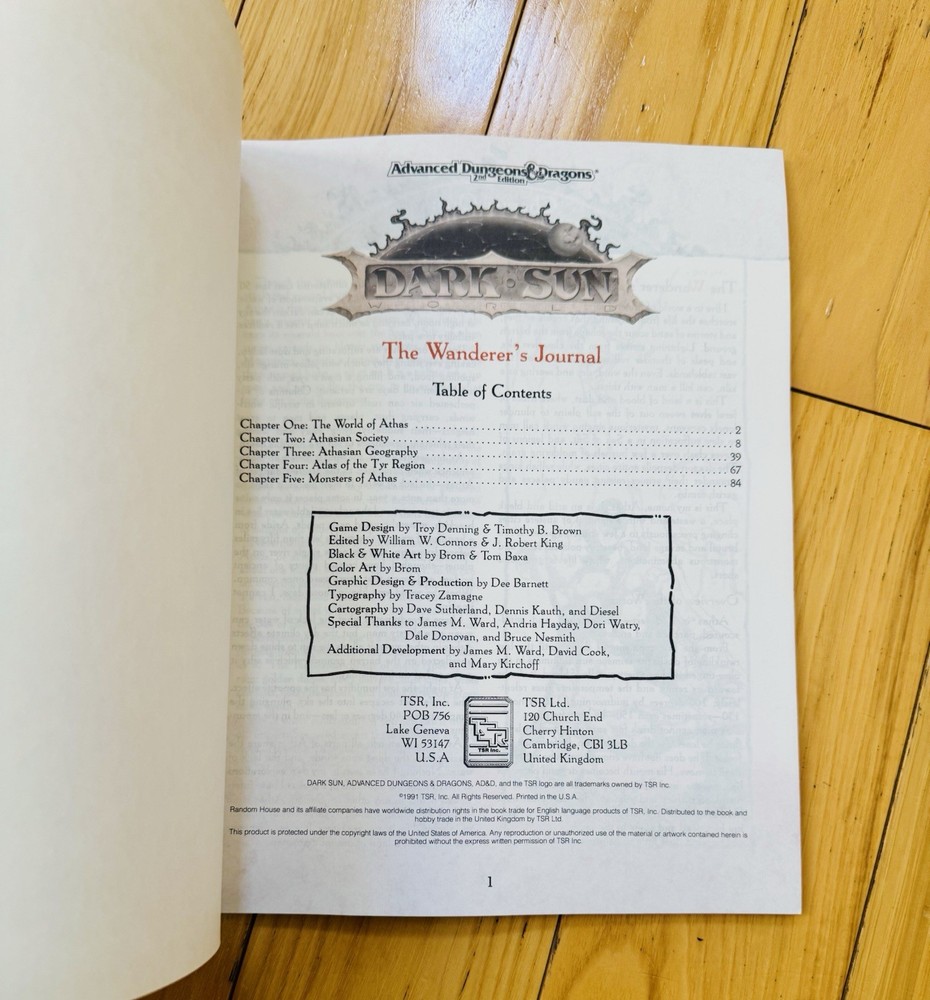 Advanced Dungeons & Dragons®
2nd Edition
DARK SUN
WORLD
The Wanderer's Journal
Table of Contents
Chapter One: The World of Athas 2
Chapter Two: Athasian Society 8
Chapter Three: Athasian Geography 39
Chapter Four: Atlas of the Tyr Region 67
Chapter Five: Monsters of Athas 84
Game Design by Troy Denning & Timothy B. Brown
Edited by William W. Connors & J. Robert King
Black & White Art by Brom & Tom Baxa
Color Art by Brom
Graphic Design & Production by Dee Barnett
Typography by Tracey Zamagne
Cartography by Dave Sutherland, Dennis Kauth, and Diesel
Special Thanks to James M. Ward, Andria Hayday, Dori Watry,
Dale Donovan, and Bruce Nesmith
Additional Development by James M. Ward, David Cook,
and Mary Kirchoff
TSR, Inc.
POB 756
Lake Geneva
WI 53147
U.S.A
TSR Inc.
TSR Ltd.
120 Church End
Cherry Hinton
Cambridge, CB1 3LB
United Kingdom
DARK SUN, ADVANCED DUNGEONS & DRAGONS, AD&D, and the TSR logo are all trademarks owned by TSR Inc.
©1991 TSR, Inc. All Rights Reserved. Printed in the U.S.A.
Random House and its affiliate companies have worldwide distribution rights in the book trade for English language products of TSR, Inc. Distributed to the book and
hobby trade in the United Kingdom by TSR Ltd.
This product is protected under the copyright laws of the United States of America. Any reproduction or unauthorized use of the material or artwork contained herein is
prohibited without the express written permission of TSR Inc.
1